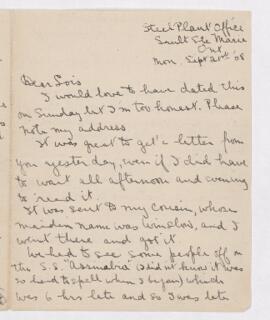 Steel Plant Office
Sault Ste Marie
Ont.
Mon. Sept 21st '08
Dear Lois
I would love to have dated this
on Sunday but I'm too honest. Please
note my address
It was great to get a letter from
you yesterday, even if I did have
to wait all afternoon and evening
to read it.
It was sent to my cousin, whose
maiden name was Winslow, and I
went there and got it
We had to see some people off on
the S.S. "Assiniboia" (I did not know it was
so hard to spell when I began) which
was 6 hrs late and so I was late